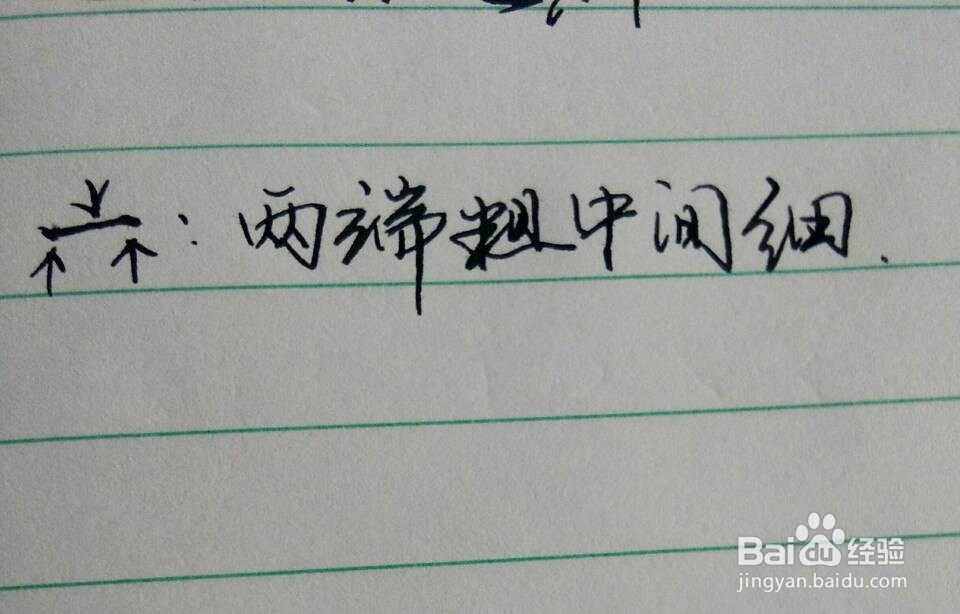 ：两端粗中间细.
Baidu经验
jingyan.baidu.com